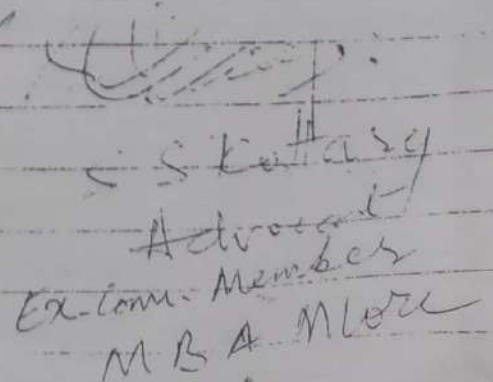 S S Kattasy
Advocat
Ex-Comm. Member
M B A Mlore